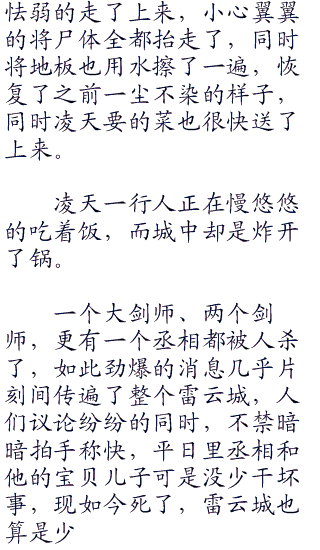 怯弱的走了上来，小心翼翼
的将尸体全都抬走了，同时
将地板也用水擦了一遍，恢
复了之前一尘不染的样子，
同时凌天要的菜也很快送了
上来。
凌天一行人正在慢悠悠
的吃着饭，而城中却是炸开
了锅。
一个大剑师、两个剑
师，更有一个丞相都被人杀
了，如此劲爆的消息几乎片
刻间传遍了整个雷云城，人
们议论纷纷的同时，不禁暗
暗拍手称快，平日里丞相和
他的宝贝儿子可是没少干坏
事，现如今死了，雷云城也
算是少